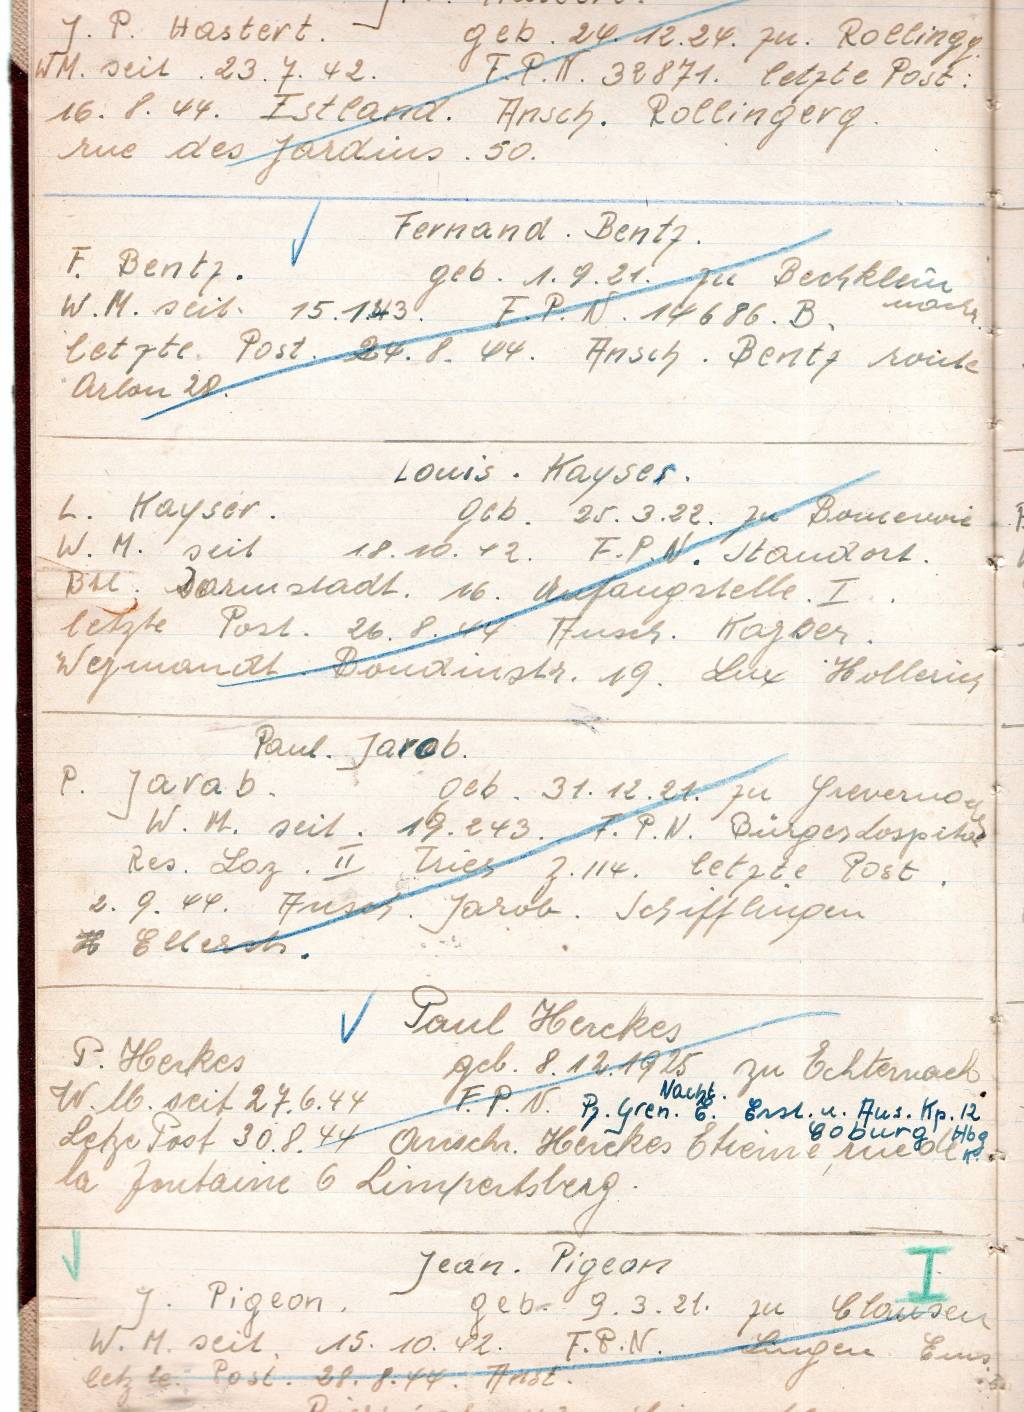 J. P. Hastert. geb. 24. 12. 24. zu. Rollingg
WM. seit 23. 7. 42. F.P.N. 32871. letzte Post:
16. 8. 44. Estland. Ansch. Rollingerg.
rue des Jardins. 50.
Fernand. Bentz.
F. Bentz. geb. 1. 9. 21. zu Bechklein
W.M. seit. F.P.N. 14686. B. mach.
letzte Post. 24. 8. 44. Ansch. Bentz route
Arlon 28.
Louis. Kayser.
L. Kayser. geb. 25. 3. 22. zu
W. M. seit 18. 10. 42. F.P.N. Standort.
Btl. Darmstadt. 16. Anfangstelle. I.
letzte Post. 26. 8. 44 Ansch. Kayser.
Weymandt. Boudinstr. 19. Lux Hollerich
Paul. Jacob.
P. Jacob. geb. 31. 12. 21. zu Grevenmach
W. M. seit. 19. 243. F.P.N. Bürgerhospital
Res. Laz. II Trier Z. 114. letzte Post.
2. 9. 44. Ansch. Jacob. Schifflingen
Paul Herckes
P. Herkes geb. 8. 12. 1925 zu Echternach.
W. M. seit 27. 6. 44 F.P.N. Pz. Gren. Nachr. E. Ers. u. Aus. Kp. 12
Coburg Hbg
Letze Post 30. 8. 44 Anschr. Herckes Etienne, rue de
la Fontaine 6 Limpertsberg.
Jean. Pigeon I
J. Pigeon. geb. 9. 3. 21. zu Clausen
W. M. seit. 15. 10. 42. F.P.N. Lingen Ems.
letzte Post. 28. 8. 44. Anst.